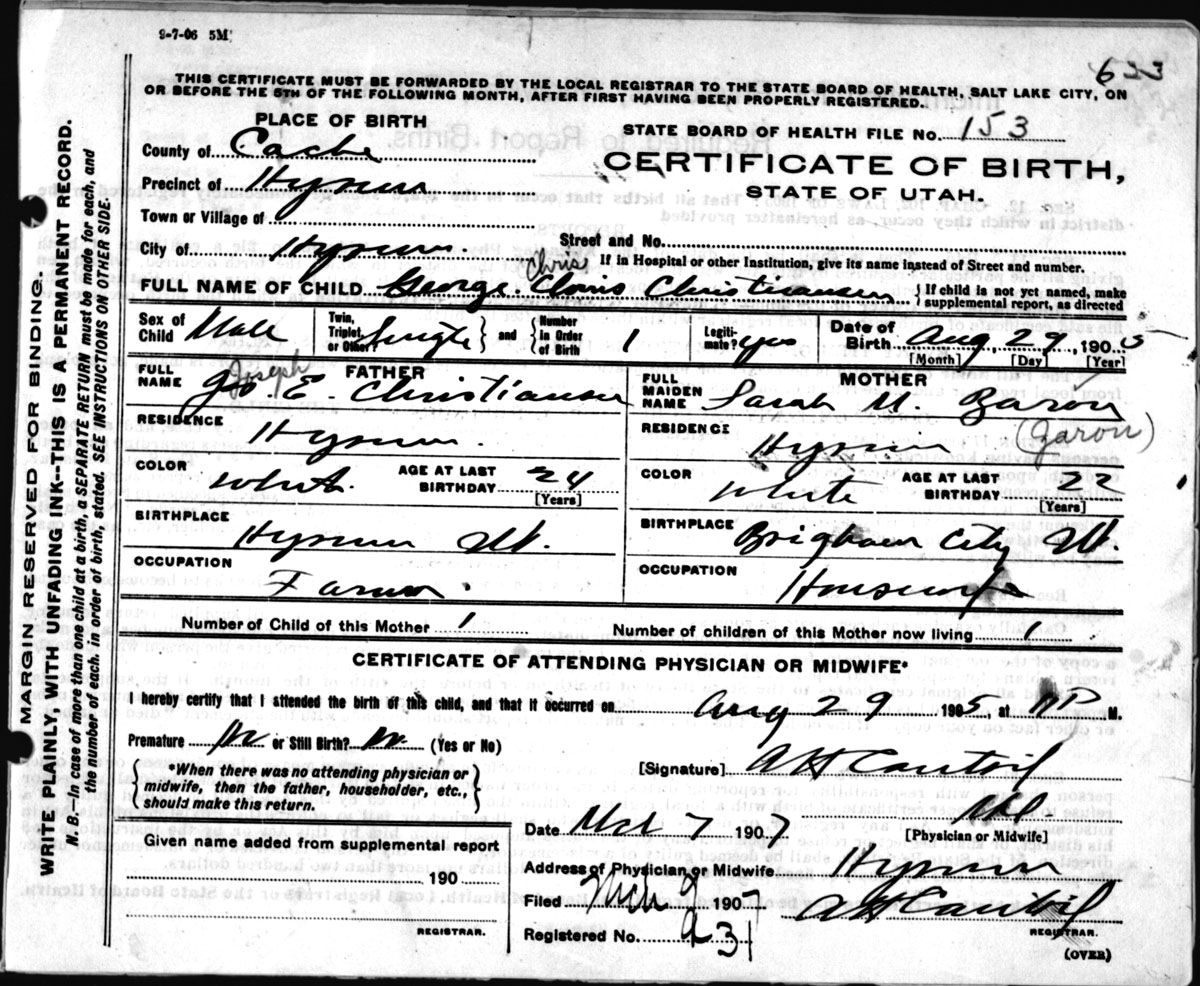 9-7-06 5M
633
THIS CERTIFICATE MUST BE FORWARDED BY THE LOCAL REGISTRAR TO THE STATE BOARD OF HEALTH, SALT LAKE CITY, ON
OR BEFORE THE 5TH OF THE FOLLOWING MONTH, AFTER FIRST HAVING BEEN PROPERLY REGISTERED.
PLACE OF BIRTH
County of Cache
Precinct of Hyrum
Town or Village of
City of Hyrum
STATE BOARD OF HEALTH FILE No. 153
CERTIFICATE OF BIRTH,
STATE OF UTAH.
Street and No.
If in Hospital or other Institution, give its name instead of Street and number.
FULL NAME OF CHILD George Christiansen
{ If child is not yet named, make
supplemental report, as directed
Sex of Child Male
Twin, Triplet, or Other? Single } and { Number in Order of Birth 1
Legitimate? yes
Date of Birth Aug 29, 1905
[Month] [Day] [Year]
FATHER
Joseph
FULL NAME Jos. E. Christiansen
RESIDENCE Hyrum
COLOR White
AGE AT LAST BIRTHDAY 24
[Years]
BIRTHPLACE Hyrum Ut.
OCCUPATION Farmer
MOTHER
FULL MAIDEN NAME Sarah M. Baron
(Garon)
RESIDENCE Hyrum
COLOR White
AGE AT LAST BIRTHDAY 22
[Years]
BIRTHPLACE Brigham City Ut.
OCCUPATION Housewife
Number of Child of this Mother 1
Number of children of this Mother now living 1
CERTIFICATE OF ATTENDING PHYSICIAN OR MIDWIFE*
I hereby certify that I attended the birth of this child, and that it occurred on Aug 29 1905, at P M.
Premature No or Still Birth? No (Yes or No)
{ *When there was no attending physician or
midwife, then the father, householder, etc.,
should make this return. }
[Signature]
MD
[Physician or Midwife]
Date Mch 7 1907
Given name added from supplemental report
190
REGISTRAR.
Address of Physician or Midwife Hyrum
Filed Mch 9 1907
REGISTRAR.
Registered No. 231
(OVER)
MARGIN RESERVED FOR BINDING.
WRITE PLAINLY, WITH UNFADING INK--THIS IS A PERMANENT RECORD.
N. B.—In case of more than one child at a birth, a SEPARATE RETURN must be made for each, and
the number of each, in order of birth, stated. SEE INSTRUCTIONS ON OTHER SIDE.